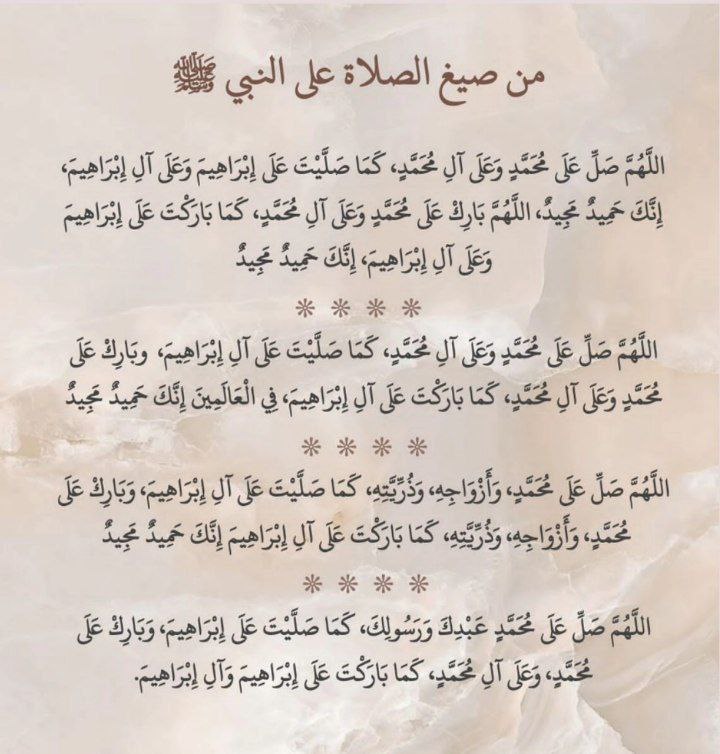 من صيغ الصلاة على النبي ﷺ
اللَّهُمَّ صَلِّ عَلَى مُحَمَّدٍ وَعَلَى آلِ مُحَمَّدٍ، كَمَا صَلَّيْتَ عَلَى إِبْرَاهِيمَ وَعَلَى آلِ إِبْرَاهِيمَ،
إِنَّكَ حَمِيدٌ مَجِيدٌ، اللَّهُمَّ بَارِكْ عَلَى مُحَمَّدٍ وَعَلَى آلِ مُحَمَّدٍ، كَمَا بَارَكْتَ عَلَى إِبْرَاهِيمَ
وَعَلَى آلِ إِبْرَاهِيمَ، إِنَّكَ حَمِيدٌ مَجِيدٌ
اللَّهُمَّ صَلِّ عَلَى مُحَمَّدٍ وَعَلَى آلِ مُحَمَّدٍ، كَمَا صَلَّيْتَ عَلَى آلِ إِبْرَاهِيمَ، وبَارِكْ عَلَى
مُحَمَّدٍ وَعَلَى آلِ مُحَمَّدٍ، كَمَا بَارَكْتَ عَلَى آلِ إِبْرَاهِيمَ، فِي الْعَالَمِينَ إِنَّكَ حَمِيدٌ مَجِيدٌ
اللَّهُمَّ صَلِّ عَلَى مُحَمَّدٍ، وَأَزْوَاجِهِ، وَذُرِّيَّتِهِ، كَمَا صَلَّيْتَ عَلَى آلِ إِبْرَاهِيمَ، وَبَارِكْ عَلَى
مُحَمَّدٍ، وَأَزْوَاجِهِ، وَذُرِّيَّتِهِ، كَمَا بَارَكْتَ عَلَى آلِ إِبْرَاهِيمَ إِنَّكَ حَمِيدٌ مَجِيدٌ
اللَّهُمَّ صَلِّ عَلَى مُحَمَّدٍ عَبْدِكَ وَرَسُولِكَ، كَمَا صَلَّيْتَ عَلَى إِبْرَاهِيمَ، وَبَارِكْ عَلَى
مُحَمَّدٍ، وَعَلَى آلِ مُحَمَّدٍ، كَمَا بَارَكْتَ عَلَى إِبْرَاهِيمَ وَآلِ إِبْرَاهِيمَ.